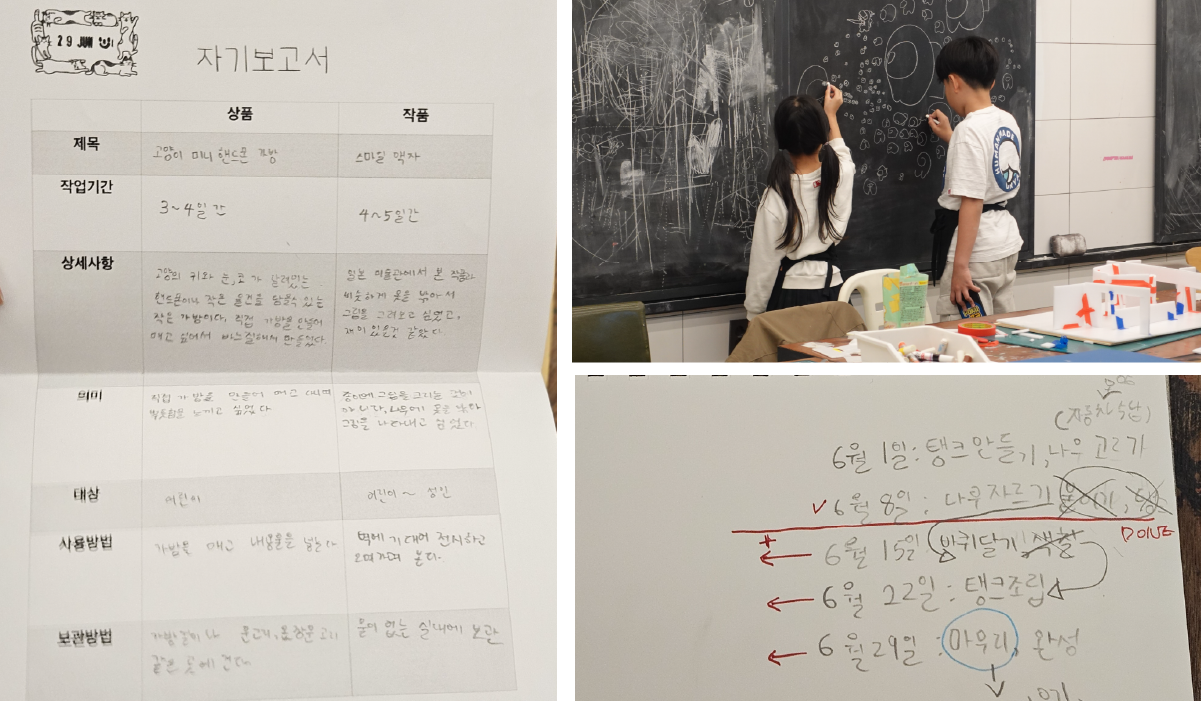 29 JUN
자기보고서
상품 작품
제목 고양이 미니 핸드폰 가방 스마일 액자
작업기간 3~4일간 4~5일간
상세사항
고양이 귀와 눈,코가 달려있는
핸드폰이나 작은 물건을 담을수 있는
작은 가방이다. 직접 가방을 만들어
매고 싶어서 바느질해서 만들었다.
일본 미술관에서 본 작품과
비슷하게 못을 박아서
그림을 그려보고 싶었고,
재미있을것 같았다.
의미
직접 가방을 만들어 매고 다니며
뿌듯함을 느끼고 싶었다
종이에 그림을 그리는 것이
아니라, 나무에 못을 박아
그림을 나타내고 싶었다.
대상 어린이 어린이 ~ 성인
사용방법
가방을 매고 내용물을 넣는다
벽에 기대어 전시하고
오며가며 본다.
보관방법
가방걸이나 문고리, 옷장문고리
같은 곳에 건다.
물이 없는 실내에 보관
HUMAN MADE
(자동차수납)
6월 1일: 탱크만들기, 나무 고르기
6월 8일: 나무자르기
DONE
6월 15일: 바퀴달기, 색칠
6월 22일: 탱크조립
6월 29일: 마무리, 완성